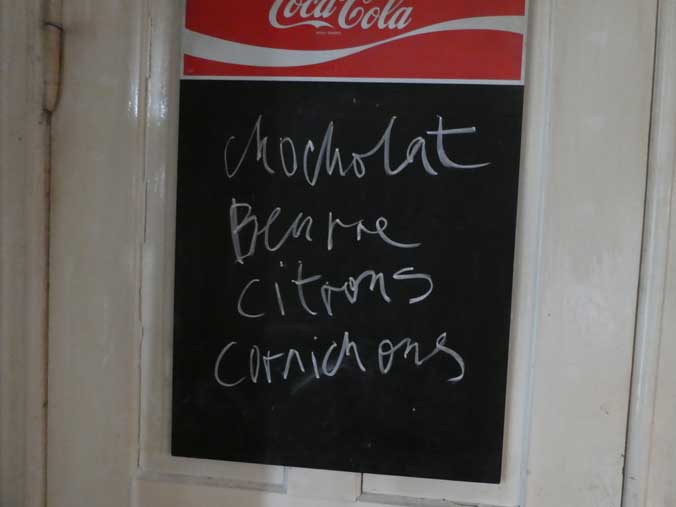 Coca-Cola
chocholat
Beurre
citrons
cornichons